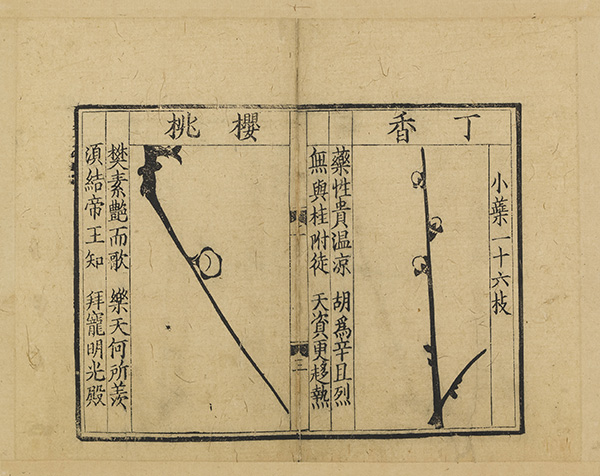 丁香
小蘂一十六枝
藥性貴温凉 胡爲辛且烈
無與桂附徒 天資更趍熱
三
櫻桃
樊素艷而歌 樂天何所羨
湏結帝王知 拜寵明光殿